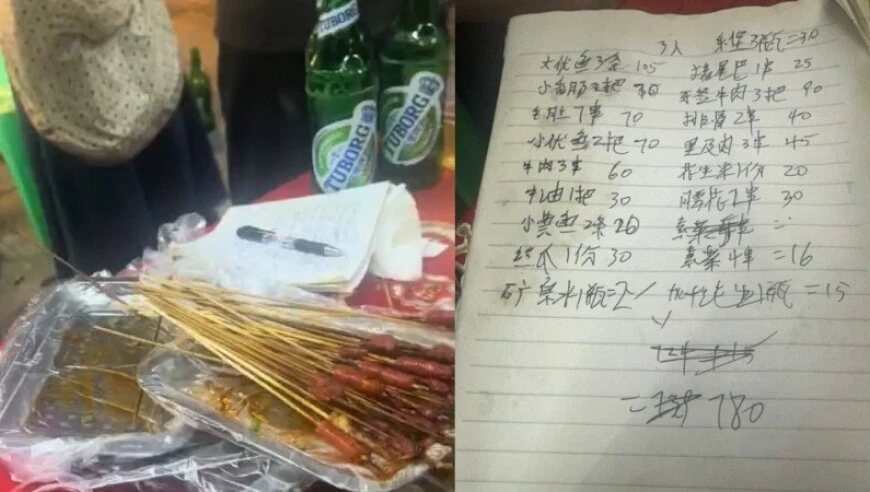 TUBORG
TUBORG
3人 乐堡3瓶=30
大优鱼3条 105 猪尾巴1串 25
小香肠2把 牙签牛肉3把 90
7串 70 排骨2串 40
小优鱼2把 70 里及肉3串 45
牛肉3串 60 花生米1份 20
牛油1把 30 腰花2串 30
小黄鱼2条 =
丝瓜1份 30 素菜4串 =16
矿泉水1瓶=2 1瓶 =15
= 780